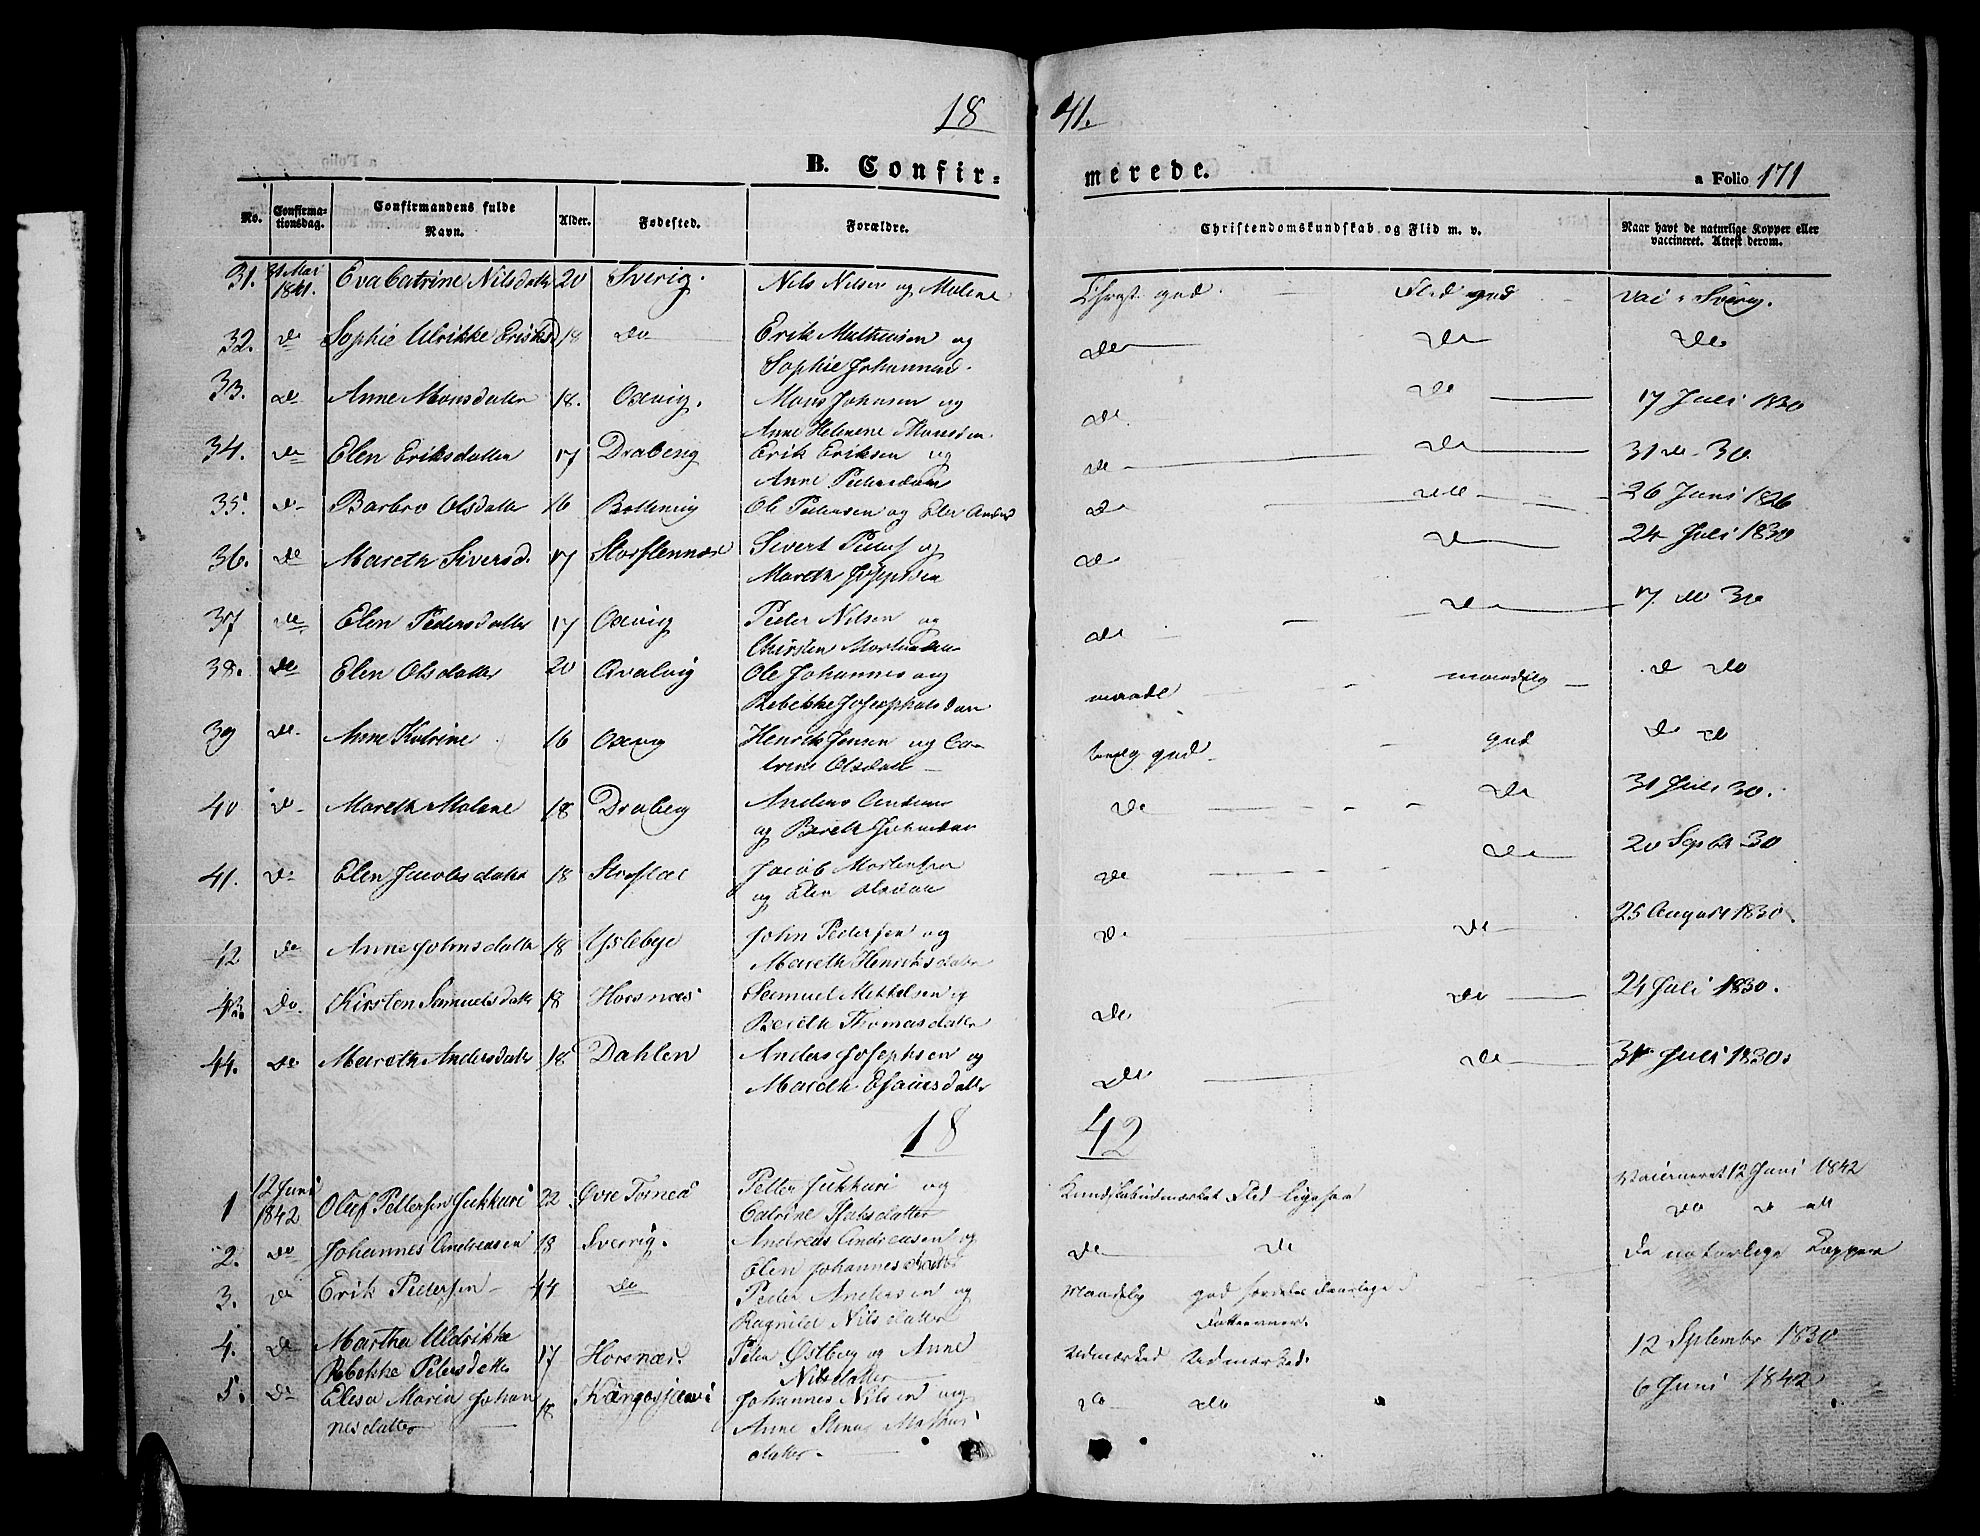 18 41.
B. Confir- merede. a Folio 171
No. Confirma-tionsdag. Confirmandens fulde Navn. Alder. Fødested. Forældre. Christendomskundskab og Flid m. v. Naar havt de naturlige Kopper eller vaccineret. Attest derom.
31. 31 Mai 1841. Eva Catrine Nilsdatter 20 Sverig. Nils Nilsen og Malene god. Flid god Vac i Sverig.
32. do Sophie Ulrikke Eriksd 18 do Erik Mathisen og do do do
Sophie Johannesd.
33. do Anne Monsdatter 18. Oxvig. Mons Johnsen og do do 17 Juli 1830
Anne Helene Monsdn
34. do Elen Eriksdatter 17 Draberg Erik Eriksen og do do 31 do 30.
Anne Pedersdatter
35. do Barbro Olsdatter 16 Ole Pedersen og Elen Andersd do do 26 Juni 1826
36. do Mareth Siversd. 17 Storslennæs Sivert Peders og do do 24 Juli 1830
Mareth
37 do Elen Pedersdatter 17 Oxvig Peder Nilsen og do do 17. do 30
Chirsten
38. do Elen Olsdatter 20 Qvalvig Ole Johannes og maade maadelig do do
Rebekke Josephsdatter
39 do Anne Katrine 16 Oxvig Henrik Jensen og Ca- god god do do
trine Olsdatter
40 do Mareth Malene 18 Draberg Anders Anders do do 31 Juli 30.
og Bereth
41. do Elen Jacobsdatter 18 Jacob Mortensen do do 20 Septbr 30
og Elen
42 do Anne Johnsdatter 18 Yslebye John Pedersen og do do 25 August 1830.
Mareth Henriksdatter
43. do. Kirsten Samuelsdatter 18 Horsnæs Samuel Mikkelsen og do do 24 Juli 1830.
Bereth Thomasdatter
44. do Mareth Andersdatter 18 Dahlen Anders Josephsen og do do 31 Juli 1830.
Mareth Esaiasdatter
18 42
1 12 Juni 1842 Oluf Pettersen Jukkuri 22. Øvre Torneå Petter Jukkuri og Kundskab udmærket Flid ligesaa Vaccineret 12 Juni 1842
Catrine Isaksdatter
2. do Johannes Andreasen 18 Sverrig. Andreas Andreasen og do do do do
Elen Johannesdatter
3. do Erik Pedersen 44 do Peder Andersen og Maadelig god De naturlige Kopper
Ragnild Nilsdatter
4. do Martha Uldrikke 17 Horsnæs. Peter Østberg og Anne Udmærked Udmærked. 12 September 1830
Rebekke Petersdatter Nilsdatter
5. do Elesa Maria Johan 18 Johannes Nilsen og do do 6 Juni 1842
nesdatter Anne Stina
datter.